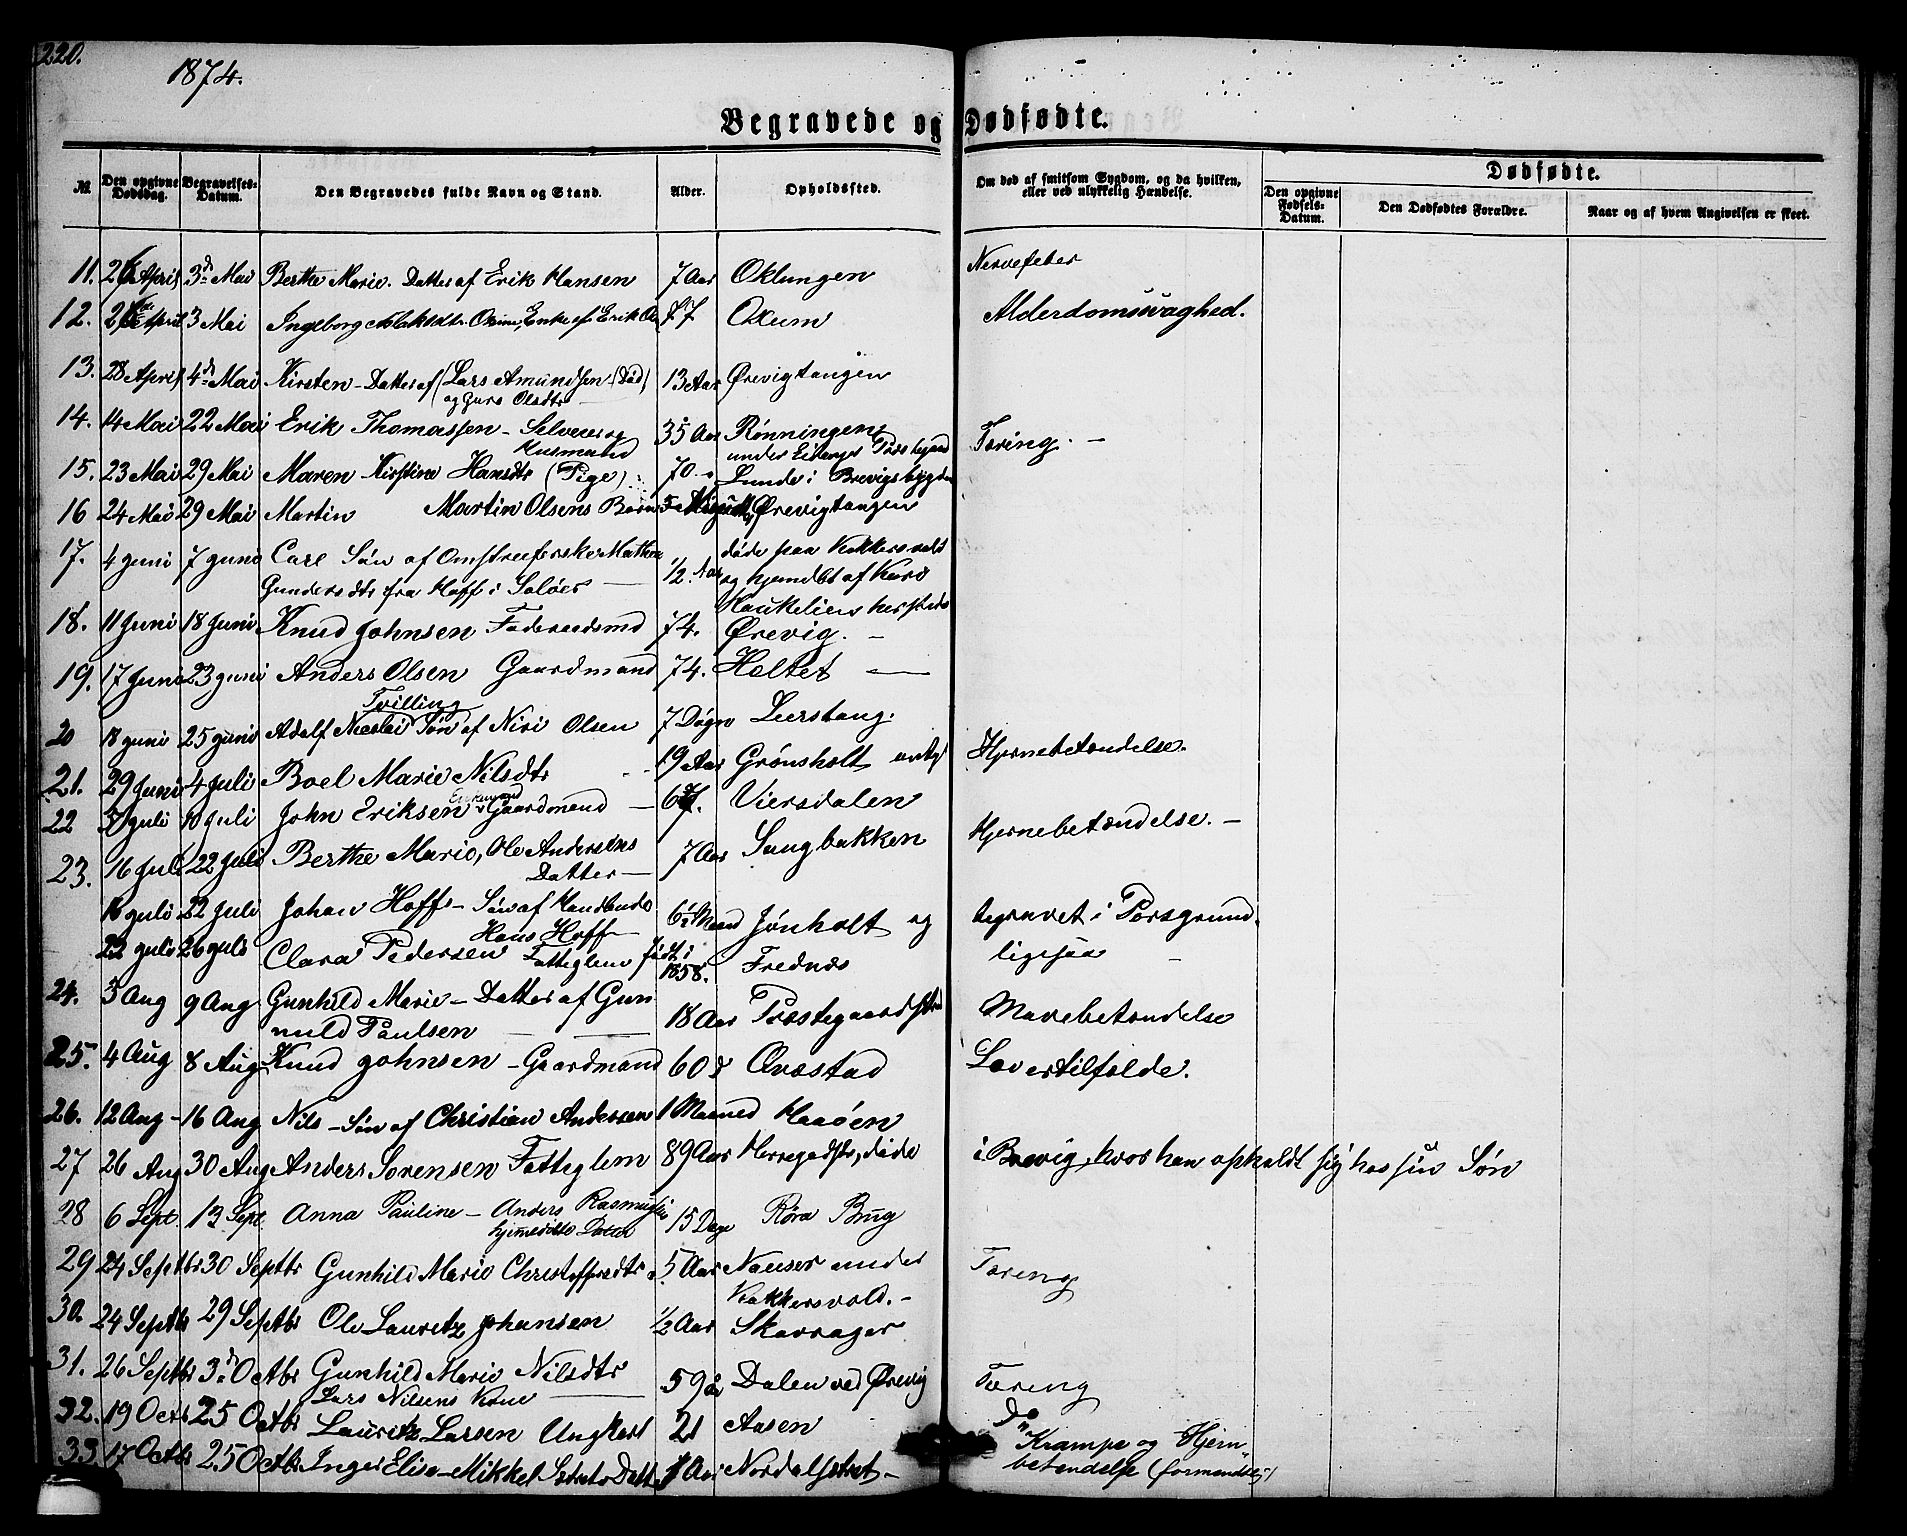 220.
1874.
Begravede og Dødfødte.
№ Den opgivne Dødsdag. Begravelses-Datum. Den Begravedes fulde Navn og Stand. Alder. Opholdssted. Om død af smitsom Sygdom, og da hvilken, eller ved ulykkelig Hændelse. Dødfødte.
Den opgivne Fødsels-Datum. Den Dødfødtes Forældre. Naar og af hvem Angivelsen er skeet.
11. April 3d Mai Berthe Marie. Datter af Erik Hansen 7 Aar Oklungen Nervefeber
12. April 3 Mai Ingeborg Enke af Erik 77 Oxum Alderdomssvaghed.
13. 28 April 4d Mai Kirsten - Datter af (Lars Amundsen (Død) 13 Aar Ørevigtangen
og Olsdtr
14. 14 Mai 22 Mai Erik Thomassen - Selveier og 35 Aar Rønningen Tæring. -
Husmand under
15. 23 Mai 29 Mai Maren Kirstine Hansdtr (Pige). 70 Lunde i Brevigsbygden
16 24 Mai 29 Mai Martin Martin Olsens Barn Ørevigtangen
17. 4 Juni 7 Juni Carl Søn af Omstreiferske 1/2 Aar døde paa Kokkersvold
Gundersdtr fra Hoff i Soløer og hjemdøbt af
18. 11 Juni 18 Juni Knud Johnsen Føderaadsmd 74. Ørevig. -
19. 17 Juni 23 Juni Anders Olsen Gaardmand 74. Holtet
Tvilling
20 18 Juni 25 Juni Adolf Nicolai Søn af Olsen 7 Døgn Leerstang.
21. 29 Juni 4 Juli Boel Marie Nilsdtr 19 Aar Grønsholt Hjernebetændelse.
22 Juli 10 Juli John Eriksen Gaardmand Viersdalen
23. 16 Juli 22 Juli Berthe Marie, Ole Andersens 7 Aar Sangbakken Hjernebetændelse. -
Datter
16 Juli 22 Juli Johan Hoff - Søn af 6½ Maand Jønholt og begravet i Porsgrund.
Hans Hoff
22 Juli 26 Juli Clara Pedersen Fatteglem født i 1858. Frednes ligesaa
24. 3 Aug 9 Aug Gunhild Marie - Datter af Gun 18 Aar Mavebetændelse
nuld Paulsen
25. 4 Aug 8 Aug Knud Johnsen - Gaardmand 60 Ovrestad Levertilfælde.
26. 12 Aug - 16 Aug Nils - Søn af Christian Andersen 1 Maaned Haaøen
27 26 Aug 30 Aug Anders Sørensen Fatteglem 89 Aar døde i Brevig, hvor han opholdt sig hos sin Søn
28 6 Sept. 13 Sept. Anna Pauline - Anders 15 Dage Røra Brug
hjemdøbte Datter
29 24 Septbr 30 Septbr Gunhild Marie 5 Aar under Tæring
Kokkersvold. -
30. 24 Septbr 29 Septbr Ole Lauritz Johansen 1/2 Aar Skavrager
31. 26 Septbr 3d Octbr Gunhild Marie Nilsdtr 59 Dalen ved Ørevig Tæring
Lars Nilsens Kone
32. 19 Octbr 25 Octbr Lauritz Larsen Ungkarl 21 Aasen Do
33. 17 Octbr 25 Octbr Inger Elise - Mikkel Datter Aar - Krampe og Hjerne
betændelse (formentlig)